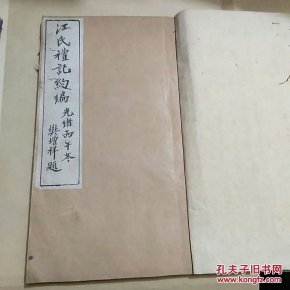 江氏禮記約編
光緒丙午冬
樊增祥題
孔夫子旧书网